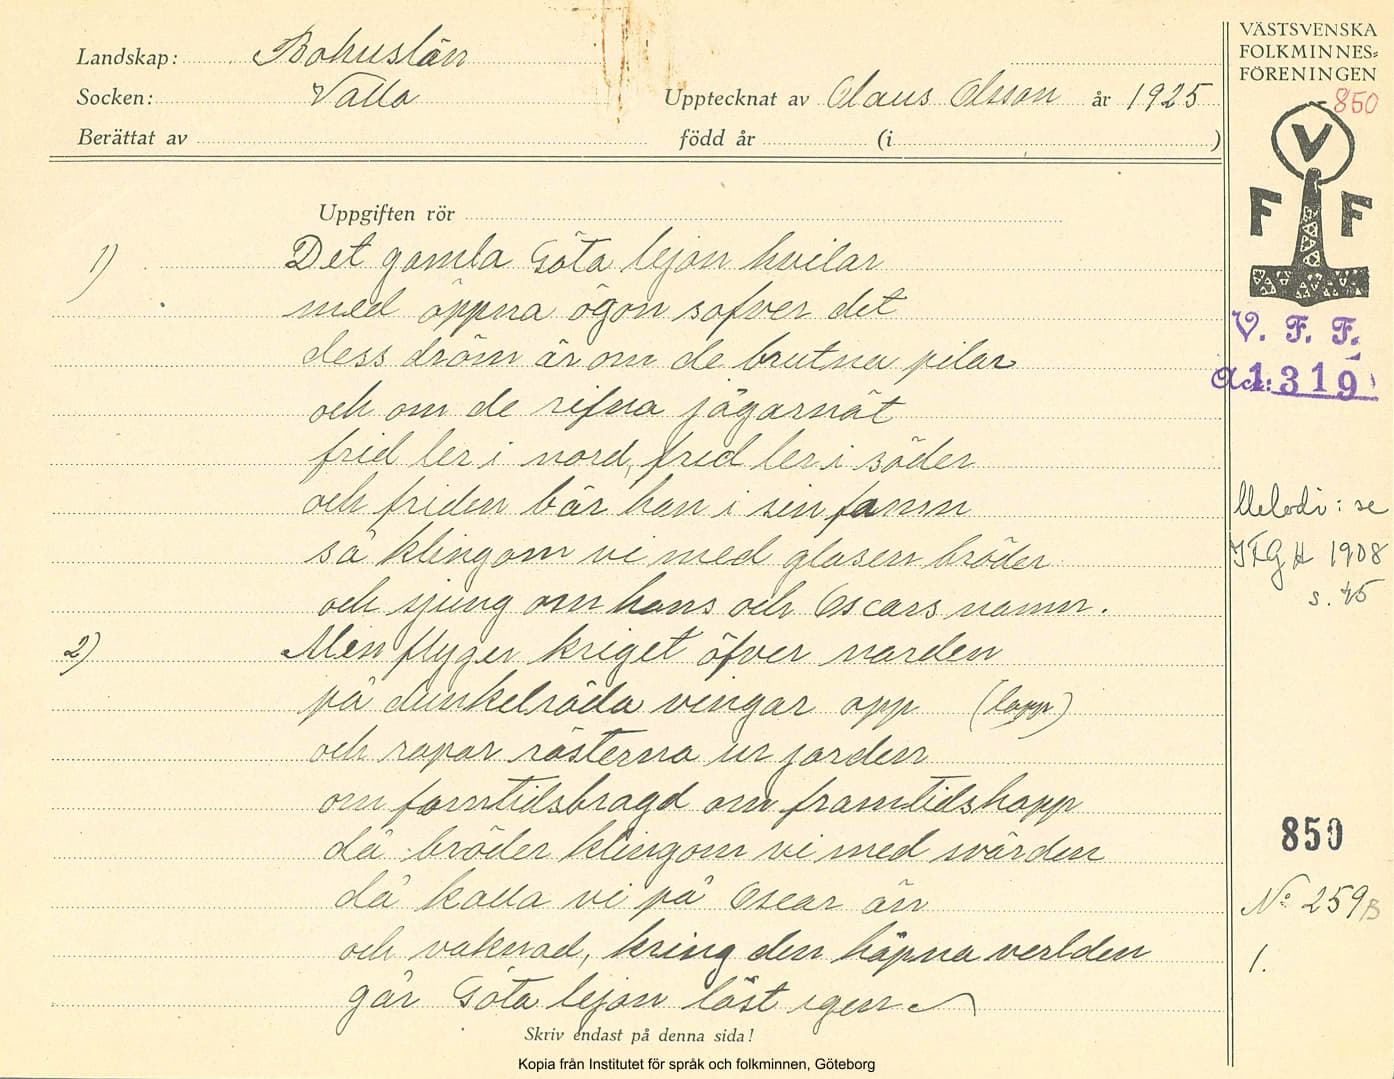 Landskap: Bohuslän
Socken: Valla
Upptecknat av Claus Olsson år 1925
Berättat av
född år (i )
VÄSTSVENSKA
FOLKMINNES-
FÖRENINGEN
850
V
F F
V. F. F.
Acc: 1319
Uppgiften rör
1) Det gamla Göta lejon hvilar
med öppna ögon sofver det
dess dröm är om de brutna pilar
och om de rifna jägarnät
frid ler i nord, frid ler i söder
och friden bär han i sin famn
så klingom vi med glasen bröder
och sjung om hans och Oscars namn.
2) Men flyger kriget öfver norden
på dunkelröda vingar opp (lopp)
och ropar rösterna ur jorden
om forntidsbragd om framtidshopp
då bröder klingom vi med svärden
då kalla vi på Oscar än
och vaknad, kring den häpna verlden
går Göta lejon löst igen
Melodi: se
1908
s. 45
850
No 259B
1.
Skriv endast på denna sida!
Kopia från Institutet för språk och folkminnen, Göteborg